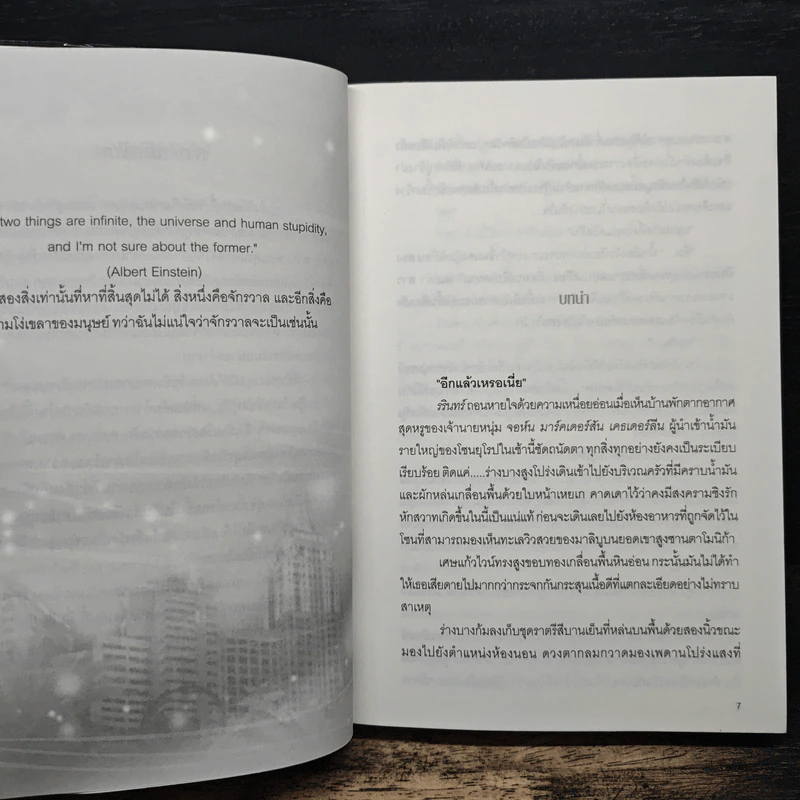 two things are infinite, the universe and human stupidity,
and I'm not sure about the former."
(Albert Einstein)
สองสิ่งเท่านั้นที่หาที่สิ้นสุดไม่ได้ สิ่งหนึ่งคือจักรวาล และอีกสิ่งคือ
ามโง่เขลาของมนุษย์ ทว่าฉันไม่แน่ใจว่าจักรวาลจะเป็นเช่นนั้น
บทนำ
"อีกแล้วเหรอเนี่ย"
รรินทร์ ถอนหายใจด้วยความเหนื่อยอ่อนเมื่อเห็นบ้านพักตากอากาศ
สุดหรูของเจ้านายหนุ่ม จอห์น มาร์คเดอร์สัน เคธเดอร์ลีน ผู้นำเข้าน้ำมัน
รายใหญ่ของโซนยุโรปในเช้านี้ชัดถนัดตา ทุกสิ่งทุกอย่างยังคงเป็นระเบียบ
เรียบร้อย ติดแค่.....ร่างบางสูงโปร่งเดินเข้าไปยังบริเวณครัวที่มีคราบน้ำมัน
และผักหล่นเกลื่อนพื้นด้วยใบหน้าเหยเก คาดเดาไว้ว่าคงมีสงครามชิงรัก
หักสวาทเกิดขึ้นในนี้เป็นแน่แท้ ก่อนจะเดินเลยไปยังห้องอาหารที่ถูกจัดไว้ใน
โซนที่สามารถมองเห็นทะเลวิวสวยของมาลิบูบนยอดเขาสูงซานตาโมนิก้า
เศษแก้วไวน์ทรงสูงขอบทองเกลื่อนพื้นหินอ่อน กระนั้นมันไม่ได้ทำ
ให้เธอเสียดายไปมากกว่ากระจกกันกระสุนเนื้อดีที่แตกละเอียดอย่างไม่ทราบ
สาเหตุ
ร่างบางก้มลงเก็บชุดราตรีสีบานเย็นที่หล่นบนพื้นด้วยสองนิ้วขณะ
มองไปยังตำแหน่งห้องนอน ดวงตากลมกวาดมองเพดานโปร่งแสงที่
7